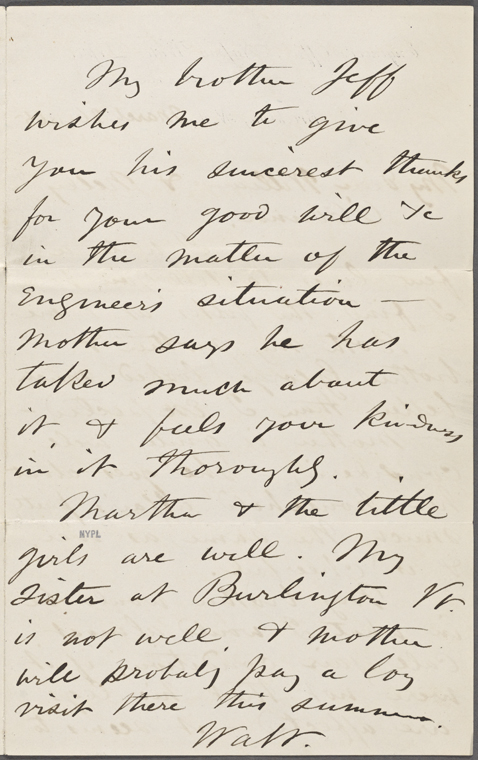 My brother Jeff
wishes me to give
you his sincerest thanks
for your good will &c
in the matter of the
Engineer's situation —
Mother says he has
talked much about
it & feels your kindness
in it thoroughly.
Martha & the little
NYPL
girls are well. My
sister at Burlington Vt.
is not well, & mother
will probaly pay a long
visit there this summer.
Walt.